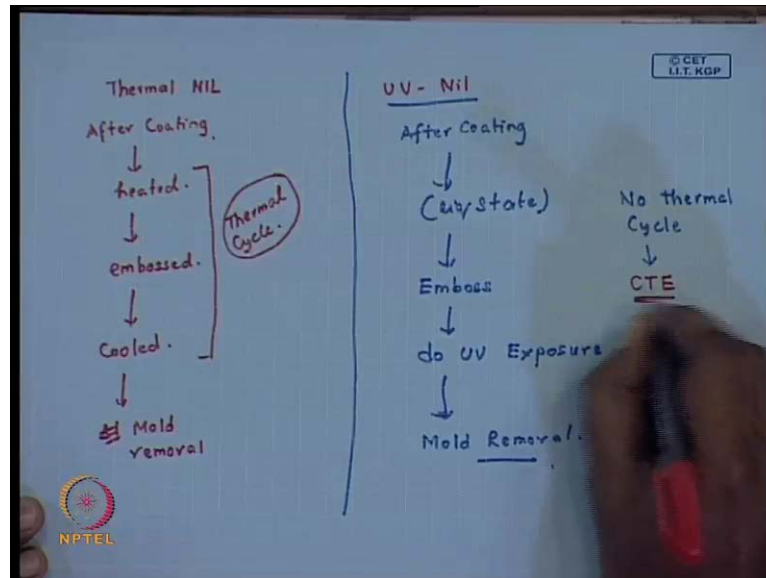 Thermal NIL
After Coating.
↓
heated.
↓
embossed.
↓
Cooled.
↓
Mold
removal
Thermal
Cycle.
UV - Nil
After Coating
↓
(liq/state)
↓
Emboss
↓
do UV Exposure
↓
Mold Removal.
No thermal
Cycle
↓
CTE
© CET
I.I.T. KGP
NPTEL